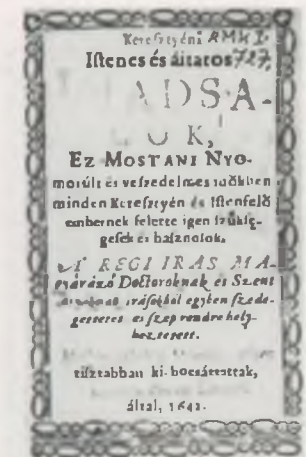 Keresztyéni RMK I.
Istenes és áitatos 727,
I ÁDSÁ-
OK,
EZ MOSTANI NYO-
morúlt és veszedelmes időkben
minden Keresztyén és Istenfelő
embernek felette igen szüksé-
gesek és hasznosok.
A REGI IRAS MA-
gyarázó Doctoroknak és Szent
irásokból egyben szede-
gettetet és szep rendre hely-
heztetett.
tisztábban ki-bocsáttattak,
által, 1642.